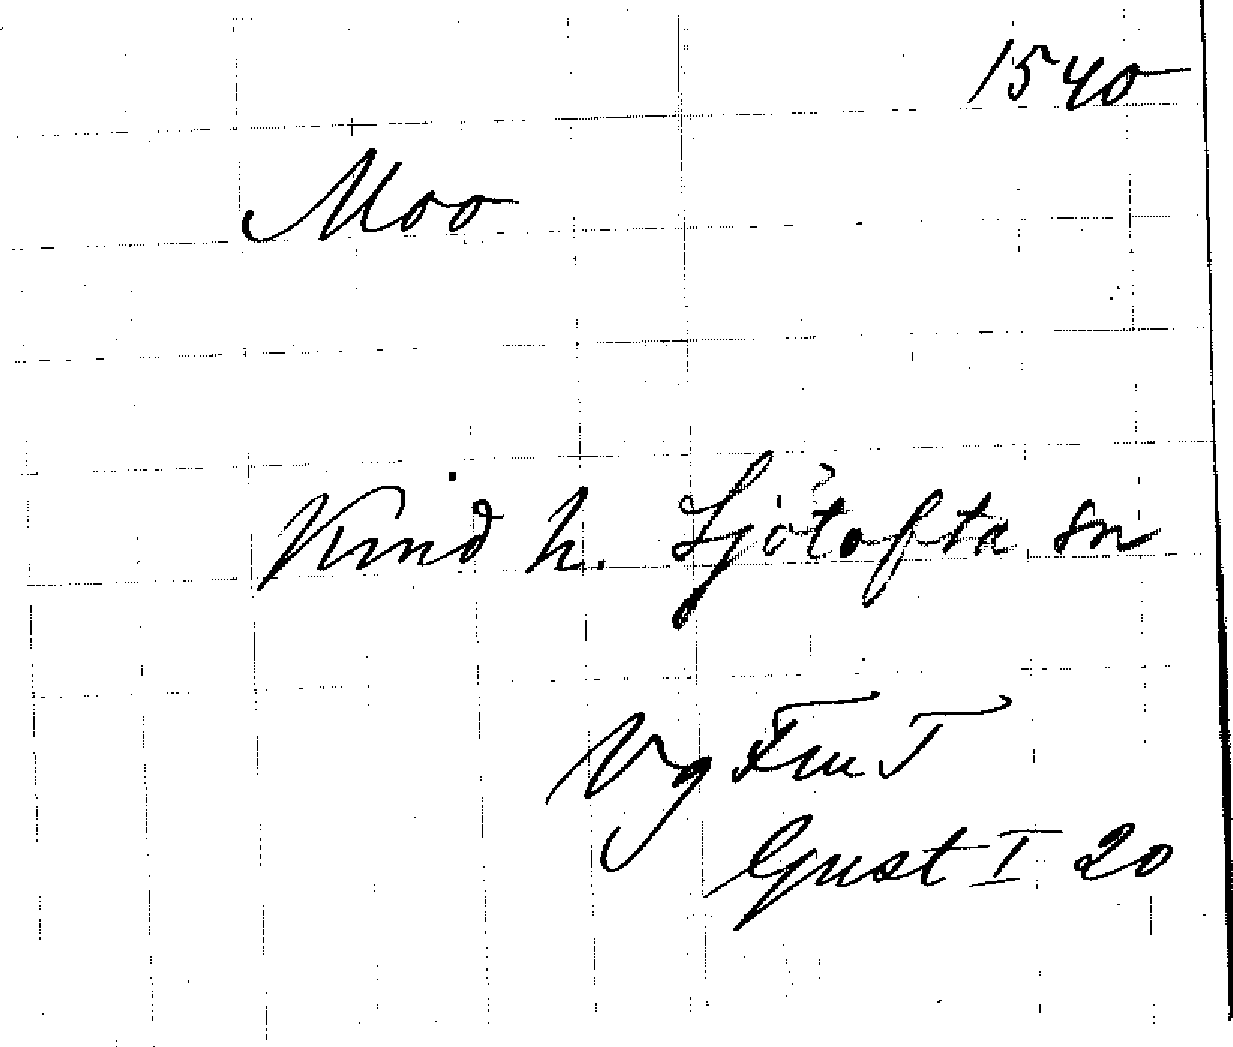 1540
Moo
Kind h. Sjötofta sn
Vg
Gust I 20